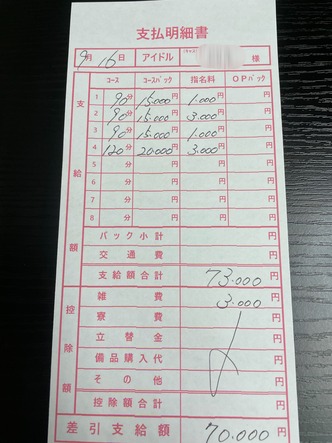 支払明細書
9月16日 アイドル (キャスト) 様
コース コースバック 指名料 OPバック
支給額
1 90分 15.000円 1.000円 円
2 90分 15.000円 3.000円 円
3 90分 15.000円 1.000円 円
4 120分 20.000円 3.000円 円
5 分 円 円 円
6 分 円 円 円
7 分 円 円 円
8 分 円 円 円
バック小計 円
交通費 円
支給額合計 73.000円
控除額
雑費 3.000円
寮費 円
立替金 円
備品購入代 円
その他 円
控除額合計 円
差引支給額 70.000円